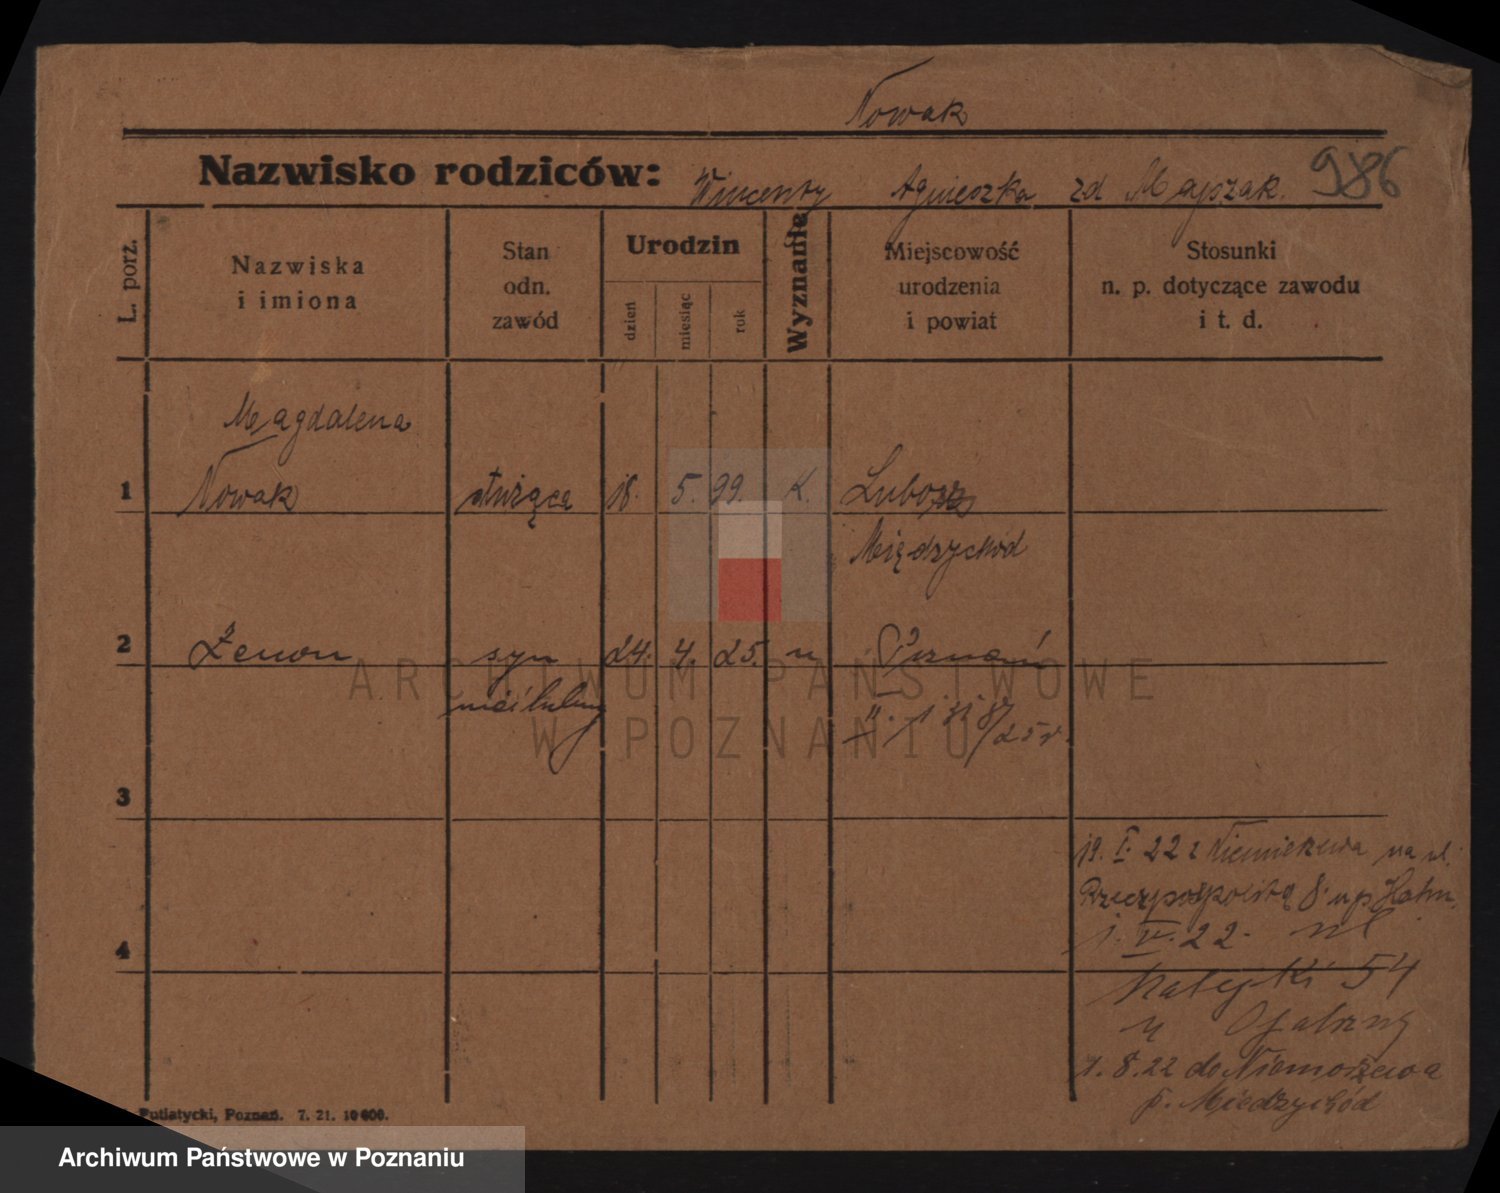 Nowak
Nazwisko rodziców: Wincenty Agnieszka zd Majszak. 986
L. porz.
Nazwiska
i imiona
Stan
odn.
zawód
Urodzin
dzień
miesiąc
rok
Wyznanie
Miejscowość
urodzenia
i powiat
Stosunki
n. p. dotyczące zawodu
i t. d.
Magdalena
1 Nowak służąca 18. 5. 99. K. Lubosz
Międzychód
2 Zenon syn 24. 4. 25. " Poznań
nieślubny
25 r.
3
19. I. 22 z na ul.
Rzeczypospolitą 8
1. V. 22.
4
54
u
1. 8. 22 do Niemierzewa
p. Międzychód
Putiatycki, Poznań. 7. 21. 10 000.
ARCHIWUM PAŃSTWOWE
W POZNANIU
Archiwum Państwowe w Poznaniu